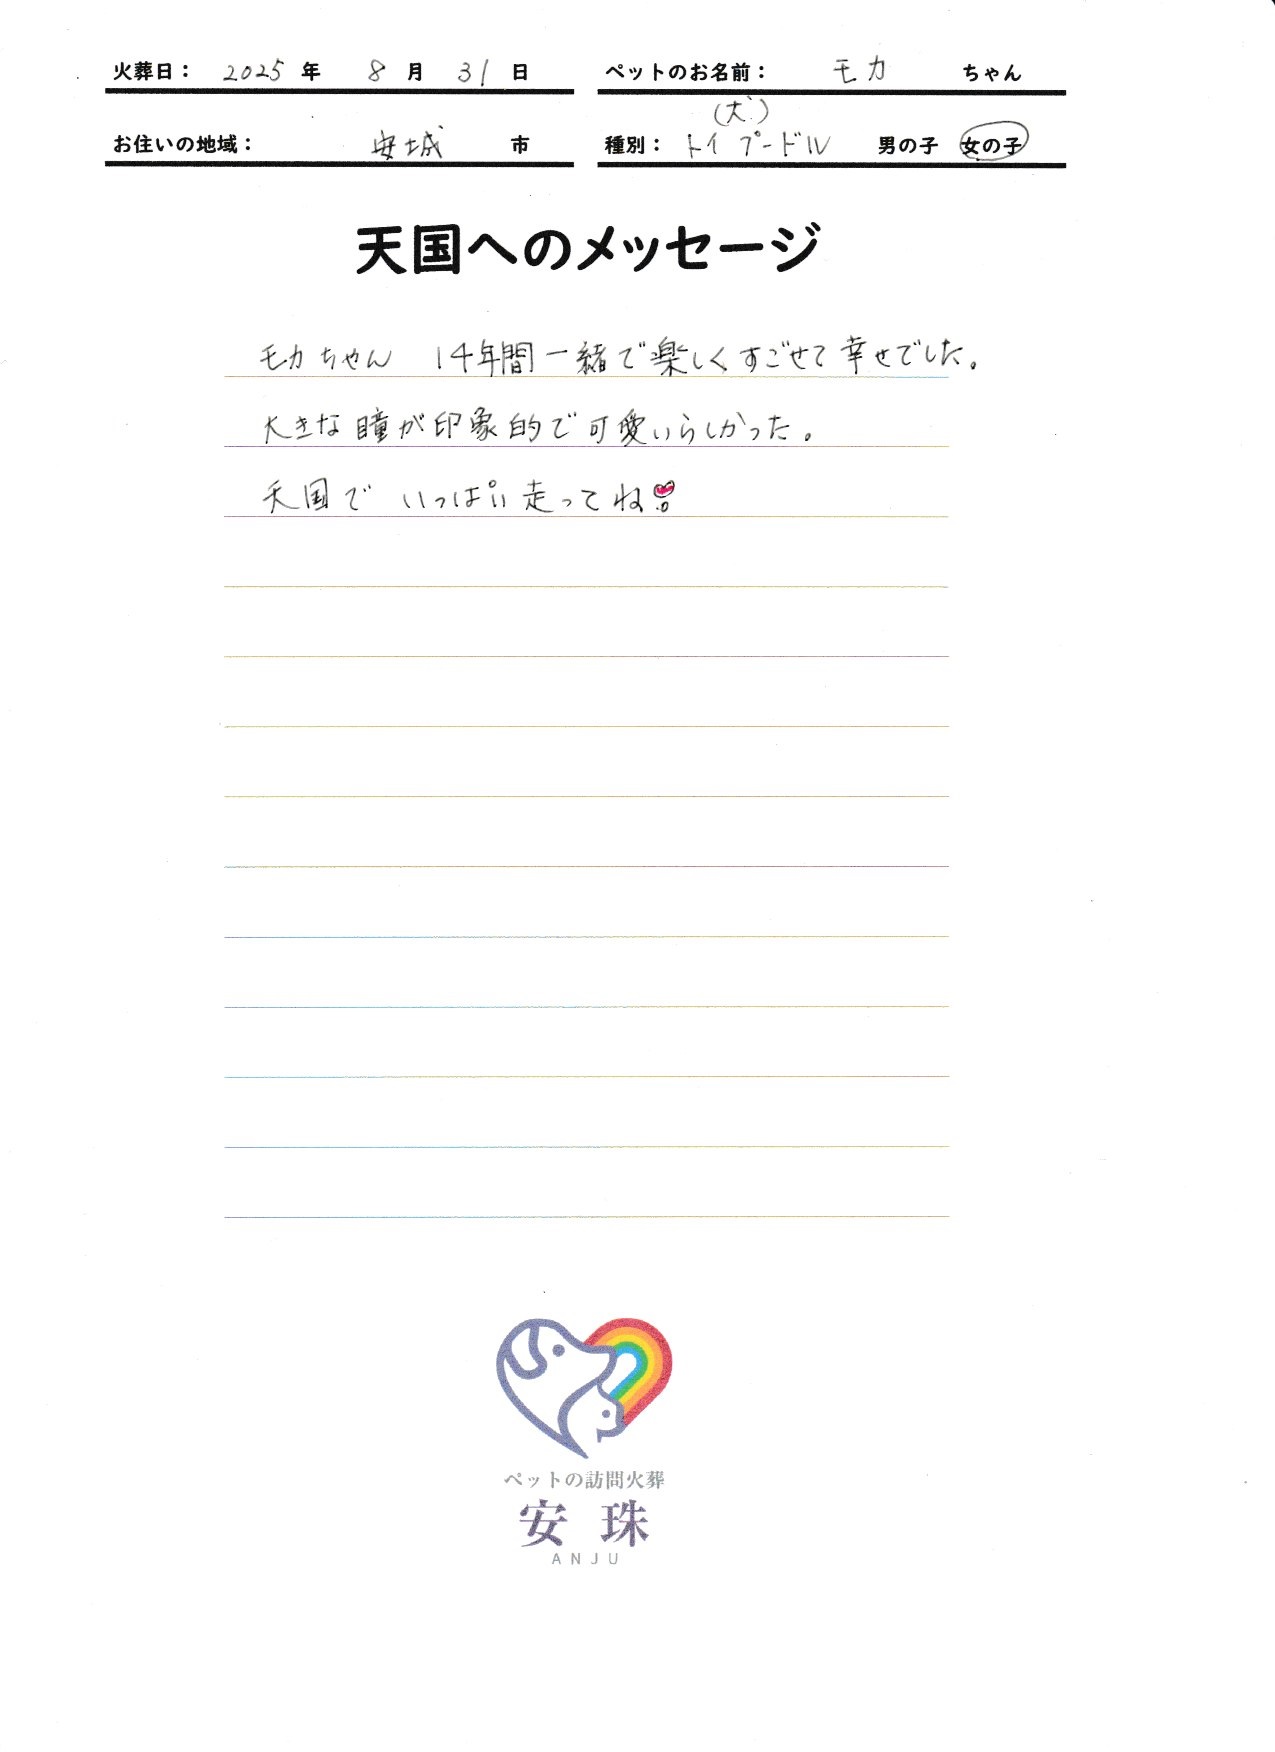 火葬日： 2025 年 8 月 31 日 ペットのお名前： モカ ちゃん
(犬)
お住いの地域： 安城 市 種別： トイプードル 男の子 女の子
天国へのメッセージ
モカちゃん 14年間一緒で楽しくすごせて幸せでした。
大きな瞳が印象的で可愛いらしかった。
天国で いっぱい走ってね
ペットの訪問火葬
安珠
ANJU